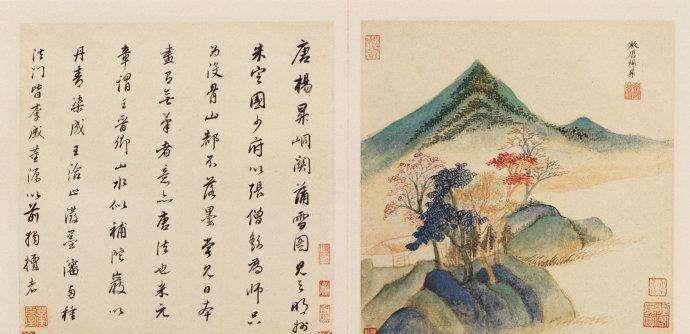 倣唐楊昇
唐楊昇峒關蒲雪圖見之明州
朱定國少府以張僧繇為師只
為沒骨山都不落墨曾見日本
畫有無筆者意亦唐法也米元
章謂王晉卿山水似補陀巖以
丹青染成王洽止潑墨瀋兩種
法門皆李成董源以前獨擅者